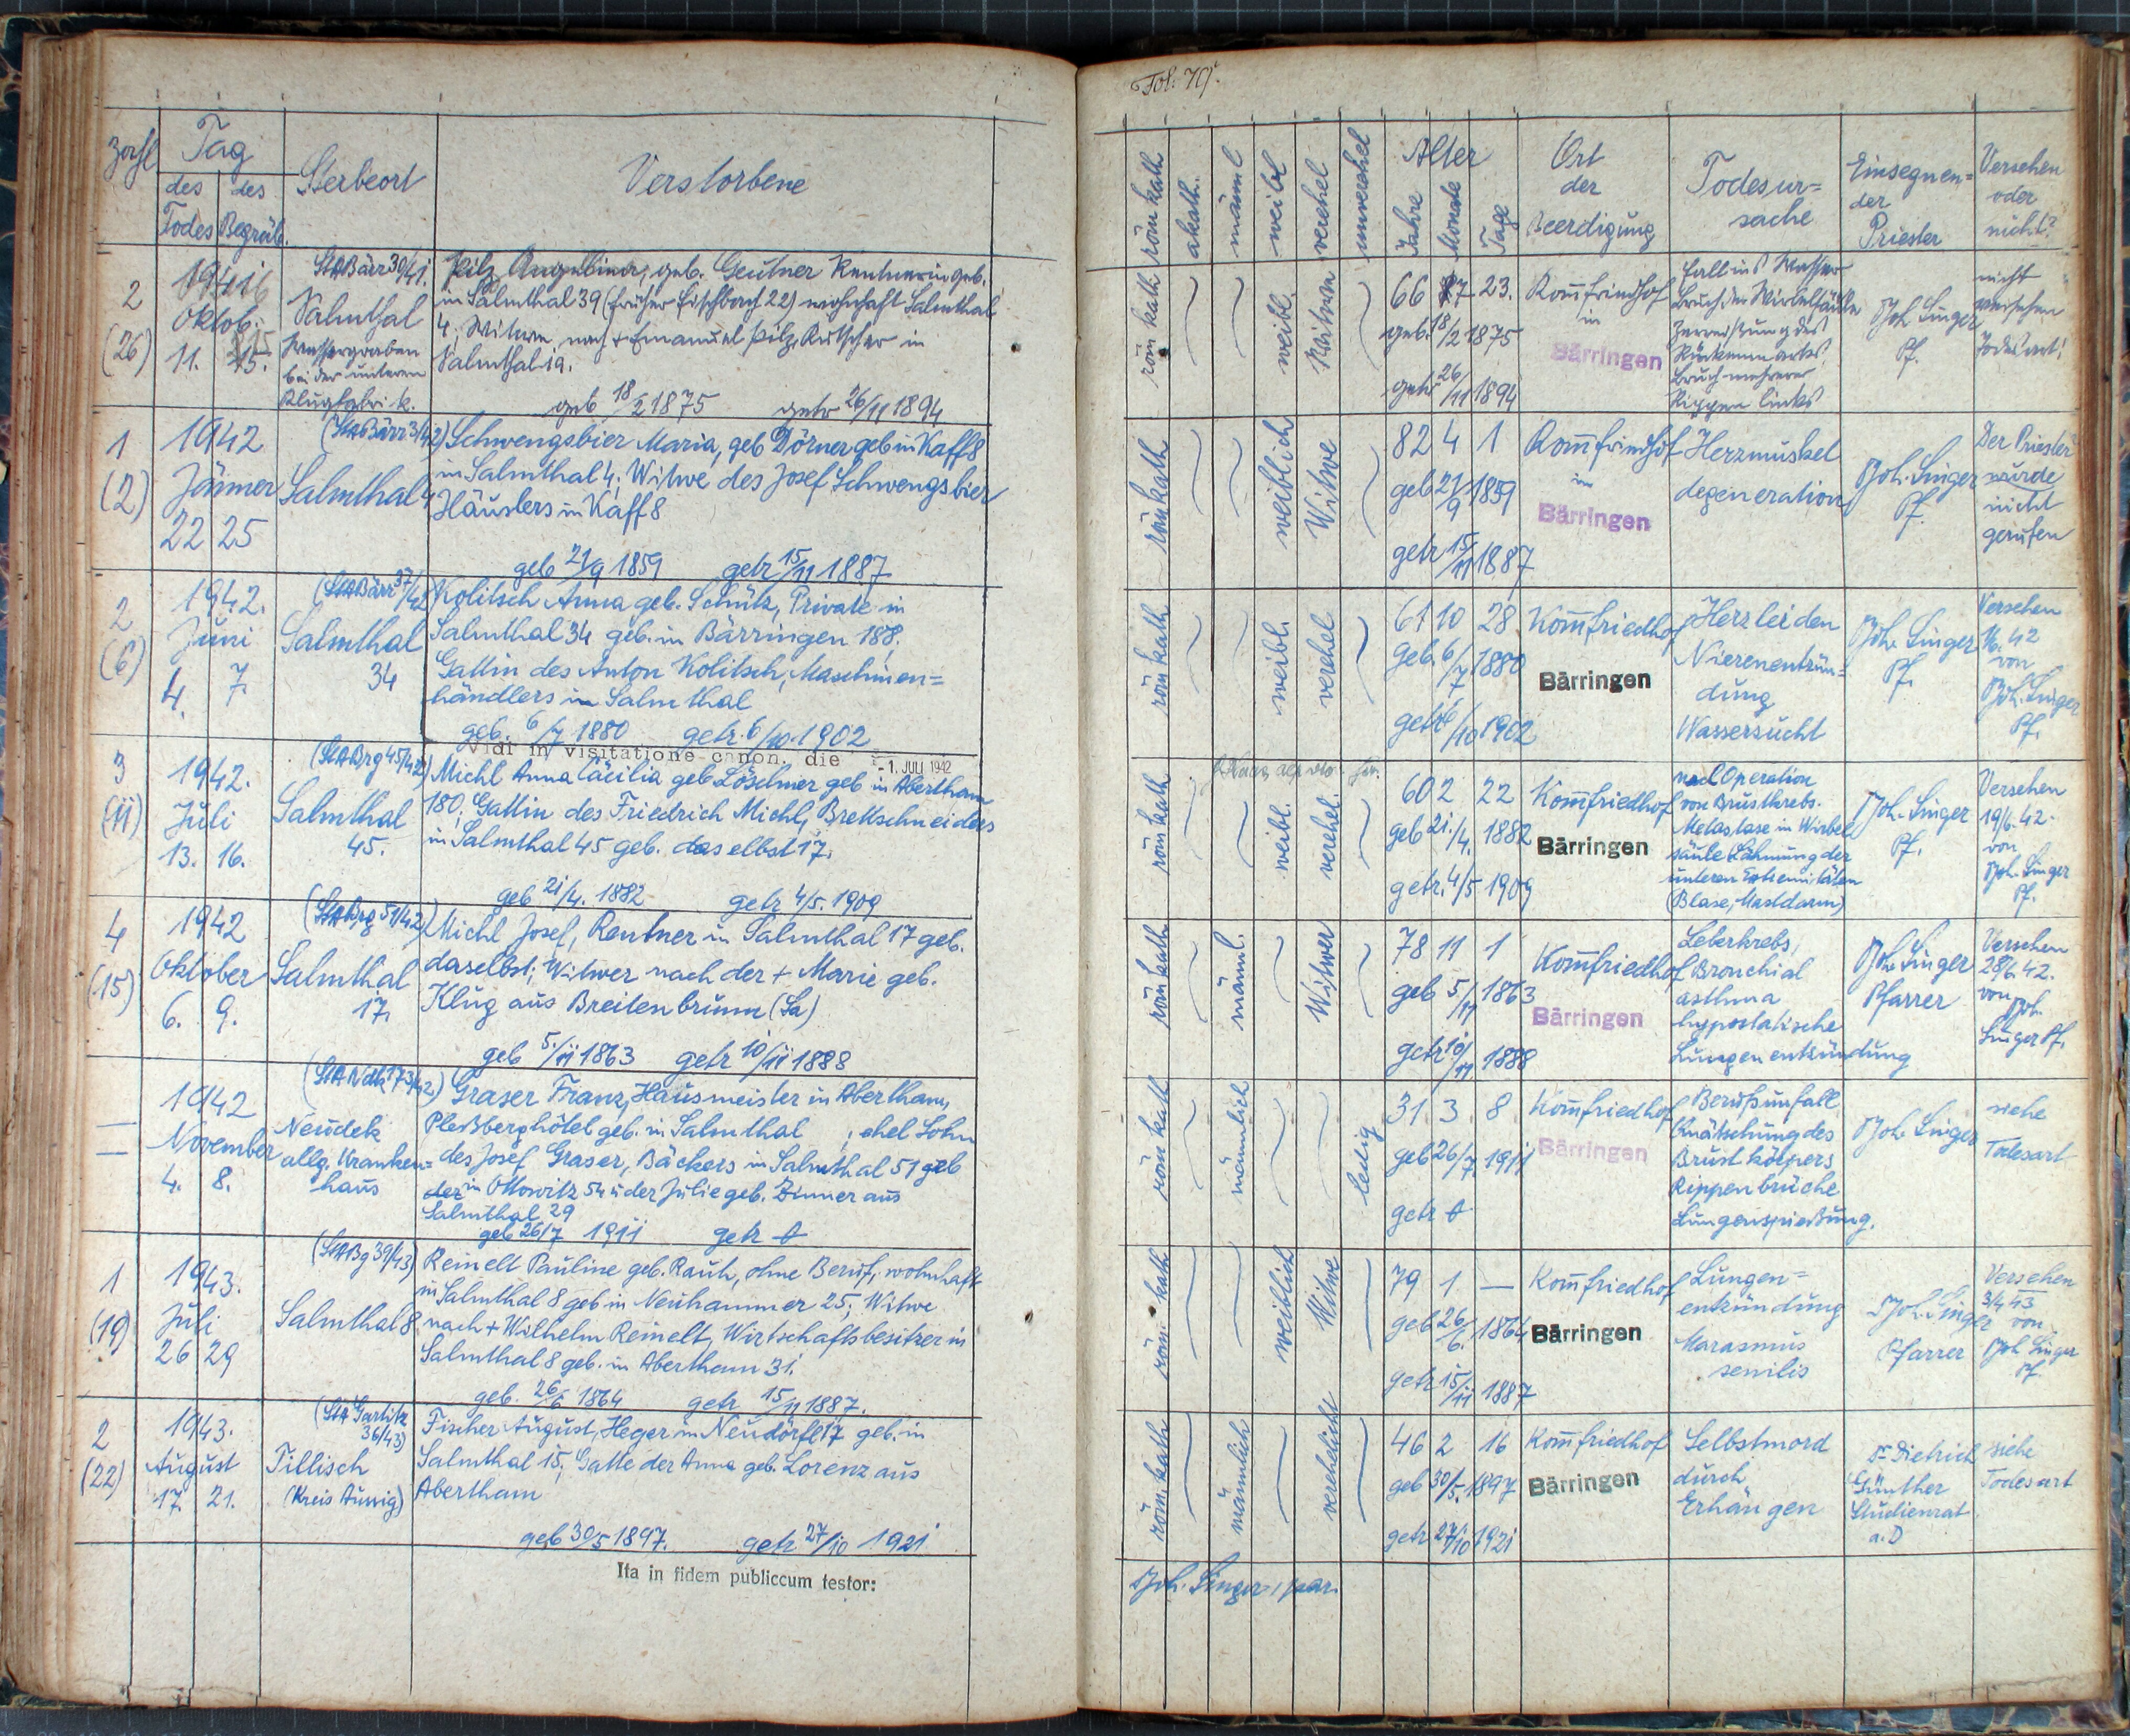 Zahl
Tag
des Todes
des Begräb.
Sterbeort
Verstorbene
2
(26)
1941
Oktob.
11. 15.
StABärr 39/41.
Salmthal
Wassergraben
bei der unteren
Pilz Angelina, geb. Geutner Rentnerin geb.
in Salmthal 39 (früher Fischbach 22) wohnhaft Salmthal
4; Witwe nach + Emanuel Pilz, Kutscher in
Salmthal 19.
geb 18/2 1875 getr 26/11 1894
1
(2)
1942
Jänner
22 25
(StABärr 3/42)
Salmthal 4
Schwengsbier Maria, geb Dörner geb in Kaff 8
in Salmthal 4; Witwe des Josef Schwengsbier
Häuslers in Kaff 8
geb 21/9 1859 getr 15/11 1887
2
(6)
1942.
Juni
4. 7.
(StABärr 37/42
Salmthal
34
Kolitsch Anna geb. Schütz, Private in
Salmthal 34 geb. in Bärringen 188,
Gattin des Anton Kolitsch, Maschinen=
händlers in Salmthal
geb. 6/7 1880 getr. 6/10 1902
Vidi in visitatione canon. die - 1. JULI 1942
3
(11)
1942.
Juli
13. 16.
(StABrg 45/42)
Salmthal
45.
Michl Anna Cäcilia geb. Löschner geb in Abertham
180; Gattin des Friedrich Michl, Brettschneiders
in Salmthal 45 geb. daselbst 17.
geb 21/4. 1882 getr 4/5. 1909
4
(15)
1942
Oktober
6. 9.
(StABrg 51/42)
Salmthal
17.
Michl Josef, Rentner in Salmthal 17 geb.
daselbst; Witwer nach der + Marie geb.
Klug aus Breitenbrunn (Sa)
geb 5./11 1863 getr 10/11 1888
—
—
1942
November
4. 8.
(StANdk 173/42)
Neudek
allg. Kranken=
haus
Graser Franz, Hausmeister in Abertham,
Pleßberghôtel geb. in Salmthal ; ehel Sohn
des Josef Graser, Bäckers in Salmthal 51 geb
in Ottowitz 54 u der Julie geb. Zinner aus
Salmthal 29
geb 26/7 1911 getr
1
(19)
1943.
Juli
26 29
(StABg 39/43)
Salmthal 8
Reinelt Pauline geb. Rauh, ohne Beruf, wohnhaft
in Salmthal 8 geb in Neuhammer 25; Witwe
nach + Wilhelm Reinelt, Wirtschaftsbesitzer in
Salmthal 8 geb. in Abertham 31.
geb. 26/6 1864 getr 15/11 1887.
2
(22)
1943.
August
17. 21.
(StA Gartitz
36/43)
Tillisch
(Kreis Aussig)
Fischer August, Heger in Neudörfl 17 geb. in
Salmthal 15; Gatte der Anna geb. Lorenz aus
Abertham
geb 30/5 1897. getr 27/10 1921
Ita in fidem publiccum testor:
Fol.
röm kath
akath.
männl
weibl
verehel
unverehel
Alter
Jahre
Monate
Tage
Ort
der
Beerdigung
Todesur=
sache
Einsegnen=
der
Priester
Versehen
oder
nicht?
röm kath
weibl.
Witwe
66 7 23.
geb. 18/2 1875
getr 26/11 1894
Komfriedhof
in
Bärringen
Fall ins Wasser
Bruch der Wirbelsäule
Zerreißung des
Rückenmarks
Bruch mehrerer
Rippen links
Joh Singer
Pf.
nicht
versehen
Todesart!
röm kath
weiblich
Witwe
82 4 1
geb 21/9 1859
getr 15/11 1887
Komfriedhof
in
Bärringen
Herzmuskel
degeneration
Joh. Singer
Pf.
Der Priester
wurde
nicht
gerufen
röm kath
weibl.
verehel
61 10 28
geb. 6/7 1880
getr 6/10 1902
Komfriedhof
Bärringen
Herzleiden
Nierenentzün=
dung
Wassersucht
Joh. Singer
Pf.
Versehen
1/6. 42
von
Joh. Singer
Pf.
röm kath
weibl.
verehel.
60 2 22
geb 21./4. 1882
getr. 4/5 1909
Komfriedhof
Bärringen
nach Operation
von Brustkrebs.
Metastase in Wirbel
säule Lähmung der
unteren Extremitäten
(Blase, Mastdarm)
Joh. Singer
Pf.
Versehen
19/6. 42.
von
Joh. Singer
Pf.
röm kath
männl.
Witwer
78 11 1
geb 5/11 1863
getr 10/11 1888
Komfriedhof
Bärringen
Leberkrebs,
Bronchial
asthma
hypostatische
Lungenentzündung
Joh. Singer
Pfarrer
Versehen
28/6. 42.
von Joh.
Singer Pf.
röm kath
männlich
ledig
31. 3. 8
geb 26/7. 1911
getr
Komfriedhof
Bärringen
Berufsunfall
Quätschung des
Brustkörpers
Rippenbrüche
Lungenspießung.
Joh. Singer
siehe
Todesart
röm. kath
weiblich
Witwe
79 1 —
geb 26/6. 1864
getr 15/11 1887
Komfriedhof
Bärringen
Lungen=
entzündung
Marasmus
senilis
Joh. Singer
Pfarrer
Versehen
3/4 43
von
Joh Singer
Pf.
röm. kath
männlich
verehelicht
46 2 16
geb 30/5. 1897
getr 27/10 1921
Komfriedhof
Bärringen
Selbstmord
durch
Erhängen
Dr Dietrich
Günther
Studienrat
a. D
siehe
Todesart
Joh. Singer,